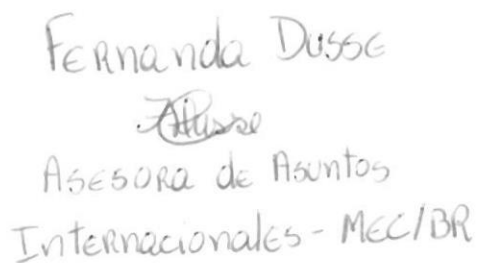 Fernanda Dusse
Asesora de Asuntos
Internacionales - MEC/BR